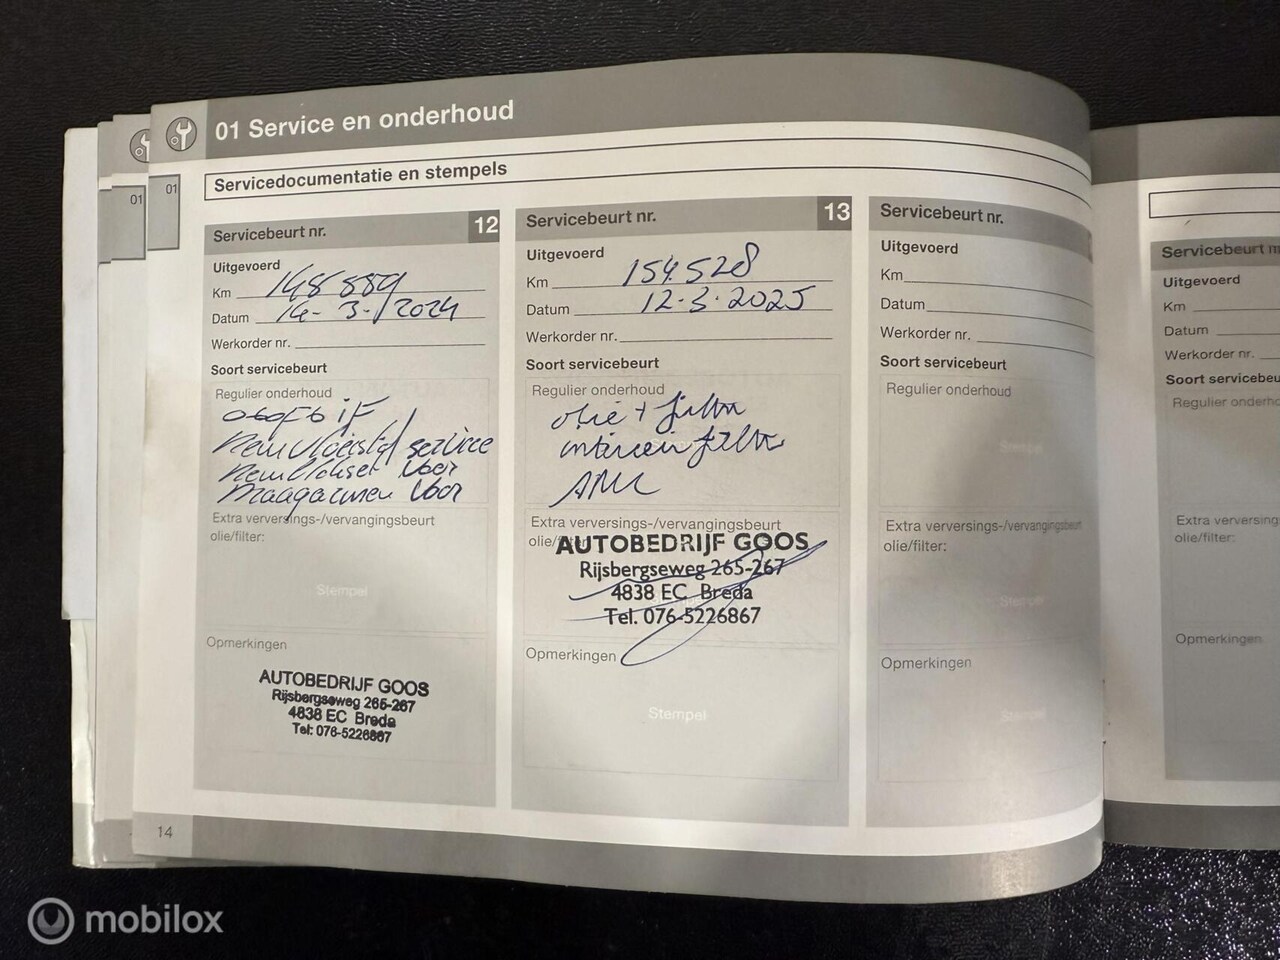 01 Service en onderhoud
01
01
Servicedocumentatie en stempels
Servicebeurt nr. 12
Uitgevoerd
Km 148 889
Datum 14-3-/2024
Werkorder nr.
Soort servicebeurt
Regulier onderhoud
Remvloeistof service
Remblokset voor
Draagarmen voor
Extra verversings-/vervangingsbeurt
olie/filter:
Stempel
Opmerkingen
AUTOBEDRIJF GOOS
Rijsbergseweg 265-267
4838 EC Breda
Tel: 076-5226867
14
Servicebeurt nr. 13
Uitgevoerd
Km 154.528
Datum 12-3-2025
Werkorder nr.
Soort servicebeurt
Regulier onderhoud
olie + filter
interieurfilter
Stempel
Extra verversings-/vervangingsbeurt
olie/filter:
AUTOBEDRIJF GOOS
Rijsbergseweg 265-267
4838 EC Breda
Tel. 076-5226867
Opmerkingen
Stempel
Servicebeurt nr.
Uitgevoerd
Km
Datum
Werkorder nr.
Soort servicebeurt
Regulier onderhoud
Stempel
Extra verversings-/vervangingsbeurt
olie/filter:
Stempel
Opmerkingen
Stempel
Servicebeurt n
Uitgevoerd
Km
Datum
Werkorder nr.
Soort servicebeu
Regulier onderho
Extra verversing
olie/filter:
Opmerkingen
mobilox